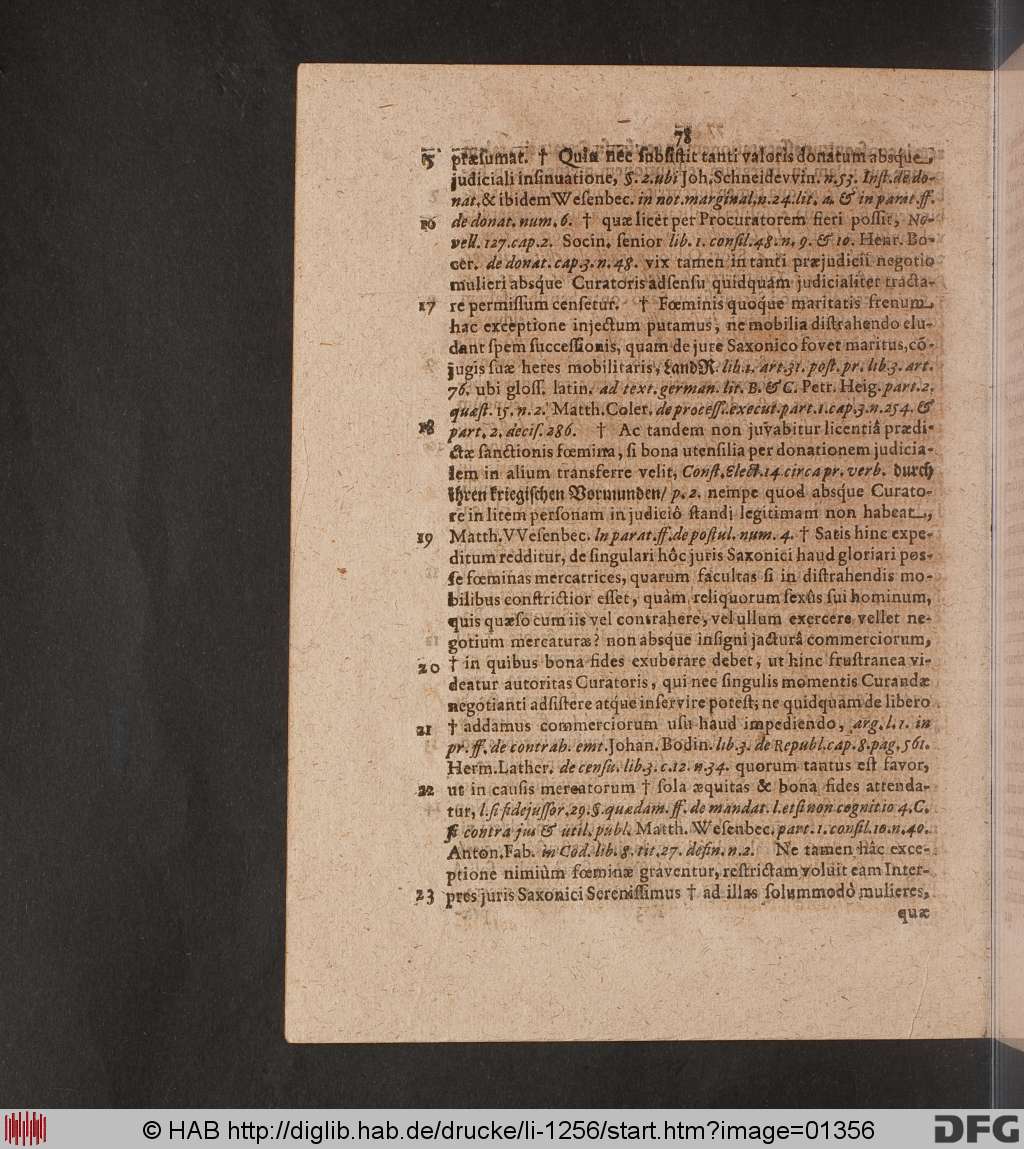 78
15 præsumat. † Quia nec subsistit tanti valoris donatum absque
judiciali insinuatione, §. 2. ubi Joh. Schneidevvin. n. 53. Inst. de do-
nat. & ibidem Wesenbec. in not. marginal. n. 24. lit. a. & in parat. ff.
16 de donat. num. 6. † quæ licèt per Procuratorem fieri possit, No-
vell. 127. cap. 2. Socin. senior lib. 1. consil. 48. n. 9. & 10. Henr. Bo-
cer. de donat. cap. 3. n. 48. vix tamen in tanti præjudicii negotio
mulieri absque Curatoris adsensu quidquam judicialiter tracta-
17 re permissum censetur. † Fœminis quoque maritatis frenum
hac exceptione injectum putamus, ne mobilia distrahendo elu-
dant spem successionis, quam de jure Saxonico fovet maritus, cõ-
jugis suæ heres mobilitaris, LandR. lib. 1. art. 31. post. pr. lib. 3. art.
76. ubi gloss. latin. ad text. german. lit. B. & C. Petr. Heig. part. 2.
quæst. 15. n. 2. Matth. Coler. de process. execut. part. 1. cap. 3. n. 254. &
18 part. 2. decis. 286. † Ac tandem non juvabitur licentiâ prædi-
ctæ sanctionis fœmina, si bona utensilia per donationem judicia-
lem in alium transferre velit, Const. Elect. 14. circa pr. verb. durch
ihren kriegischen Vormunden/ p. 2. nempe quod absque Curato-
re in litem personam in judiciô standi legitimam non habeat,
19 Matth. VVesenbec. In parat. ff. de postul. num. 4. † Satis hinc expe-
ditum redditur, de singulari hôc juris Saxonici haud gloriari pos-
se fœminas mercatrices, quarum facultas si in distrahendis mo-
bilibus constrictior esset, quàm reliquorum sexûs sui hominum,
quis quæso cum iis vel contrahere, vel ullum exercere vellet ne-
gotium mercaturæ? non absque insigni jacturâ commerciorum,
20 † in quibus bona fides exuberare debet, ut hinc frustranea vi-
deatur autoritas Curatoris, qui nec singulis momentis Curandæ
negotianti adsistere atque inservire potest; ne quidquam de libero
21 † addamus commerciorum usu haud impediendo, arg. l. 1. in
pr. ff. de contrah. emt. Johan. Bodin. lib. 3. de Republ. cap. 8. pag. 561.
Herm. Lather. de censu. lib. 3. c. 12. n. 34. quorum tantus est favor,
22 ut in causis mercatorum † sola æquitas & bona fides attenda-
tur, l. si fidejussor. 29. §. quædam. ff. de mandat. l. etsi non cognitio 4. C.
si contra jus & util. publ. Matth. Wesenbec. part. 1. consil. 10. n. 40.
Anton. Fab. in Cod. lib. 8. tit. 27. defin. n. 2. Ne tamen hâc exce-
ptione nimiùm fœminæ graventur, restrictam voluit eam Inter-
23 pres juris Saxonici Serenissimus † ad illas solummodò mulieres,
quæ
© HAB http://diglib.hab.de/drucke/li-1256/start.htm?image=01356
DFG